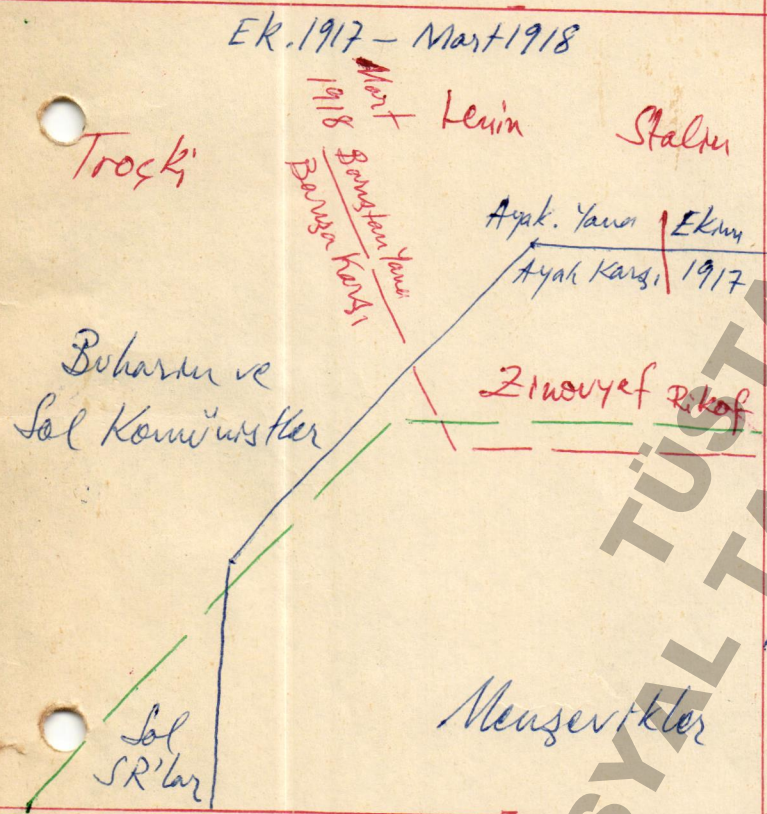 Ek. 1917 – Mart 1918
Troçki
Mart
1918
Barıştan Yana
Barışa Karşı
Lenin
Stalin
Ayak. Yana
Ekim
Ayak Karşı
1917
Buharin ve
Sol Komünistler
Zinovyef
Rikof
Sol
SR'lar
Menşevikler
TÜSTA
SYAL TA